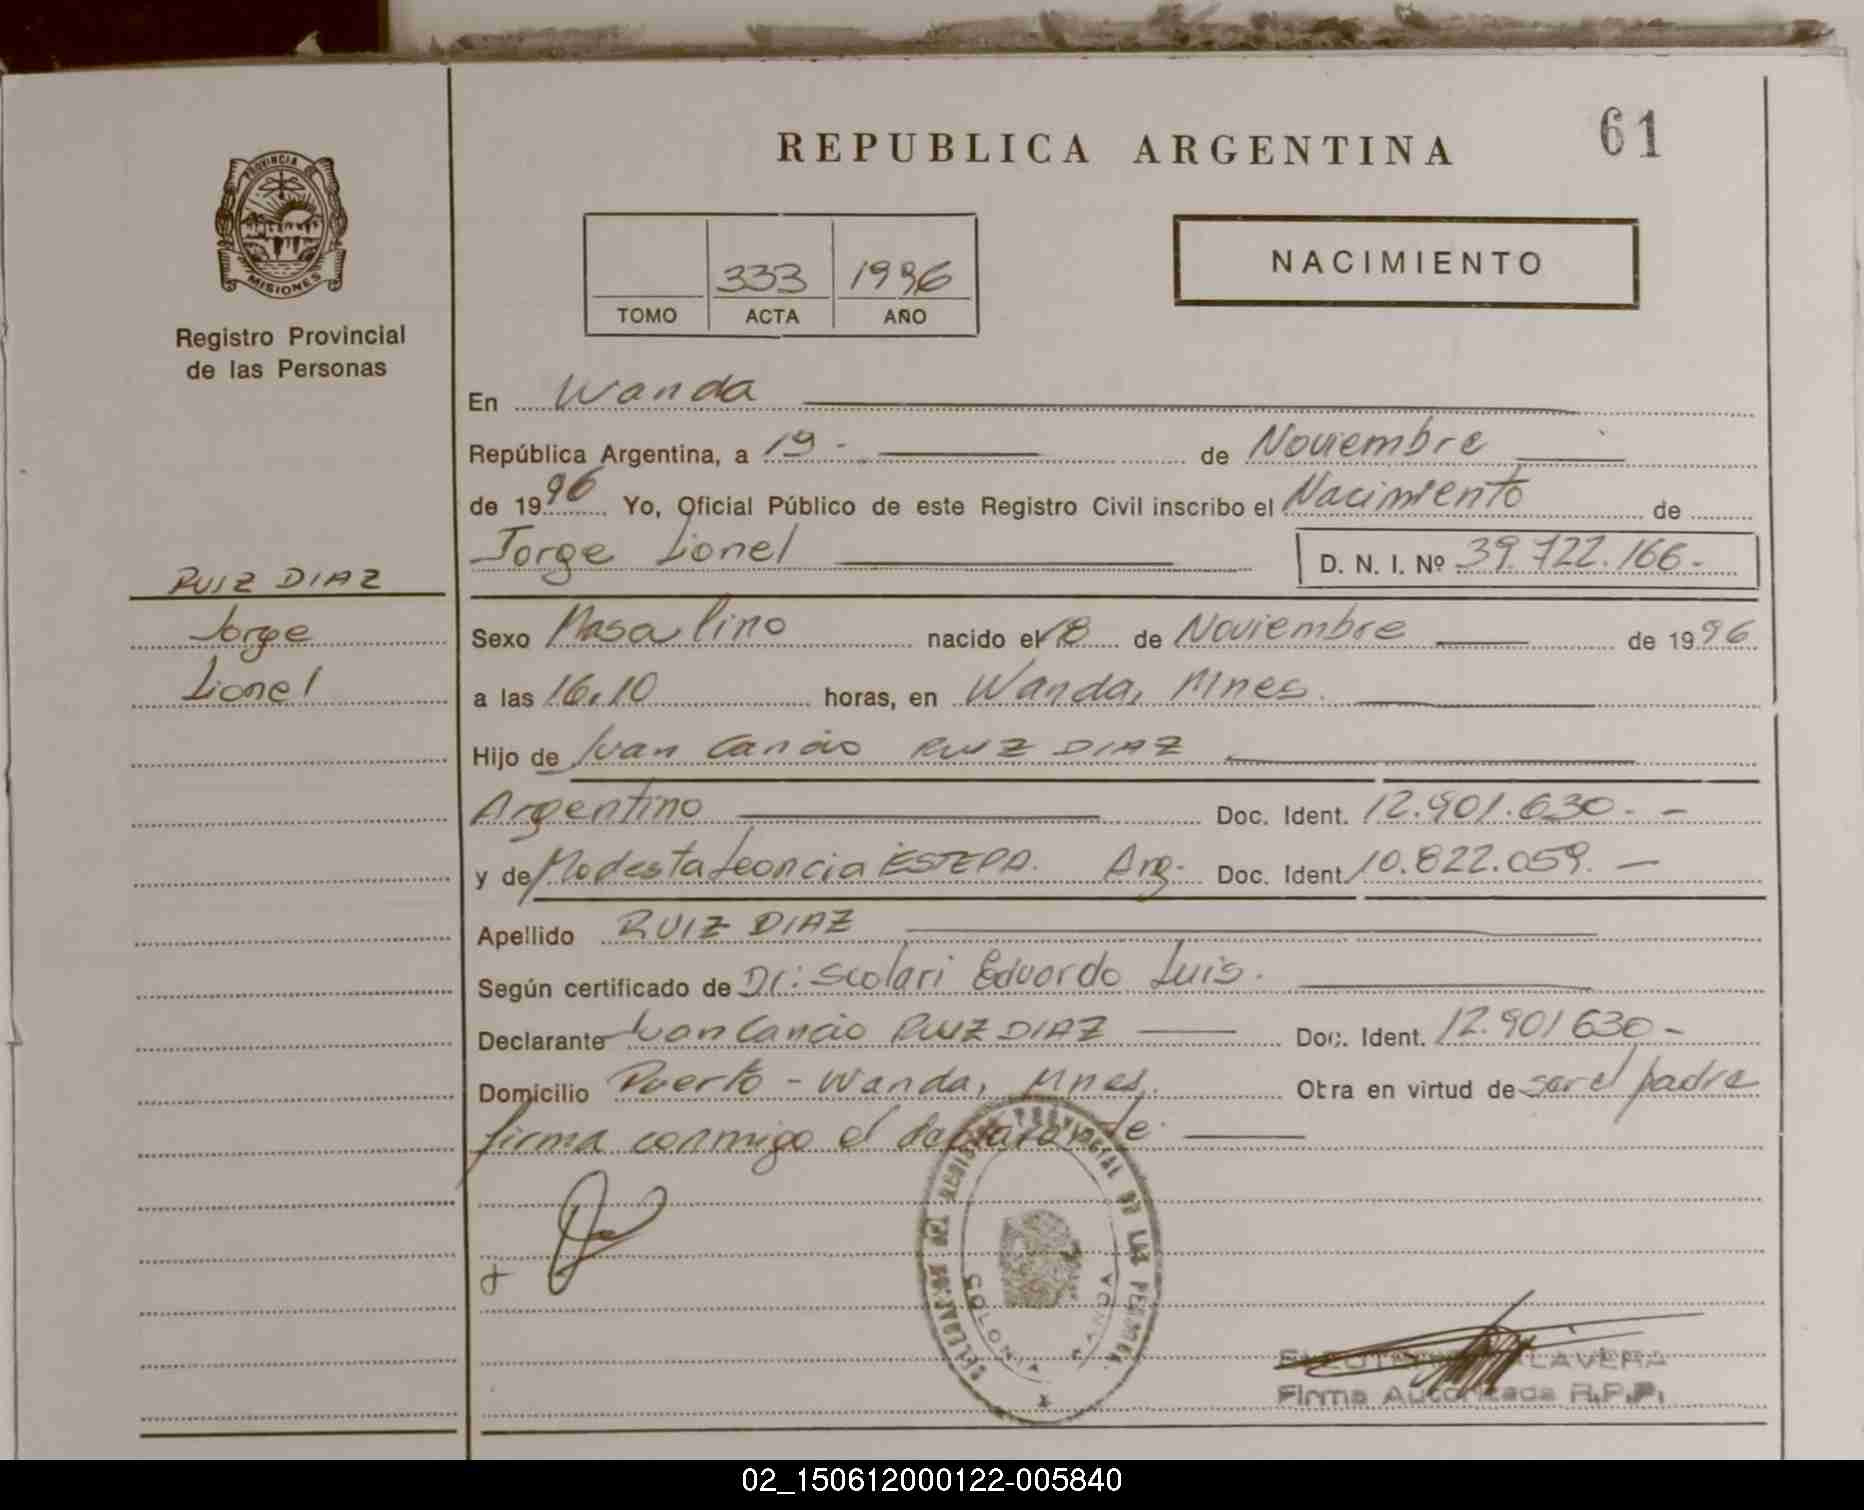 REPUBLICA ARGENTINA
61
PROVINCIA DE
MISIONES
Registro Provincial
de las Personas
333 1996
TOMO ACTA AÑO
NACIMIENTO
En Wanda
República Argentina, a 19- de Noviembre
de 1996 Yo, Oficial Público de este Registro Civil inscribo el Nacimiento de
Jorge Lionel D. N. I. Nº 39.722.166.-
RUIZ DIAZ
Jorge
Lionel
Sexo Masculino nacido el 18 de Noviembre de 1996
a las 16,10 horas, en Wanda, Mnes.
Hijo de Juan Cancio RUIZ DIAZ
Argentino Doc. Ident. 12.901.630.-
y de Modesta Leoncia ESTEPA. Arg. Doc. Ident. 10.822.059.-
Apellido RUIZ DIAZ
Según certificado de Dr: Scolari Eduardo Luis.
Declarante Juan Cancio RUIZ DIAZ Doc. Ident. 12.901630-
Domicilio Puerto - Wanda, Mnes. Obra en virtud de ser el padre
firma conmigo el declarante.
REGISTRO PROVINCIAL DE LAS
COLONIA WANDA
Firma Autorizada R.P.P.
02_150612000122-005840